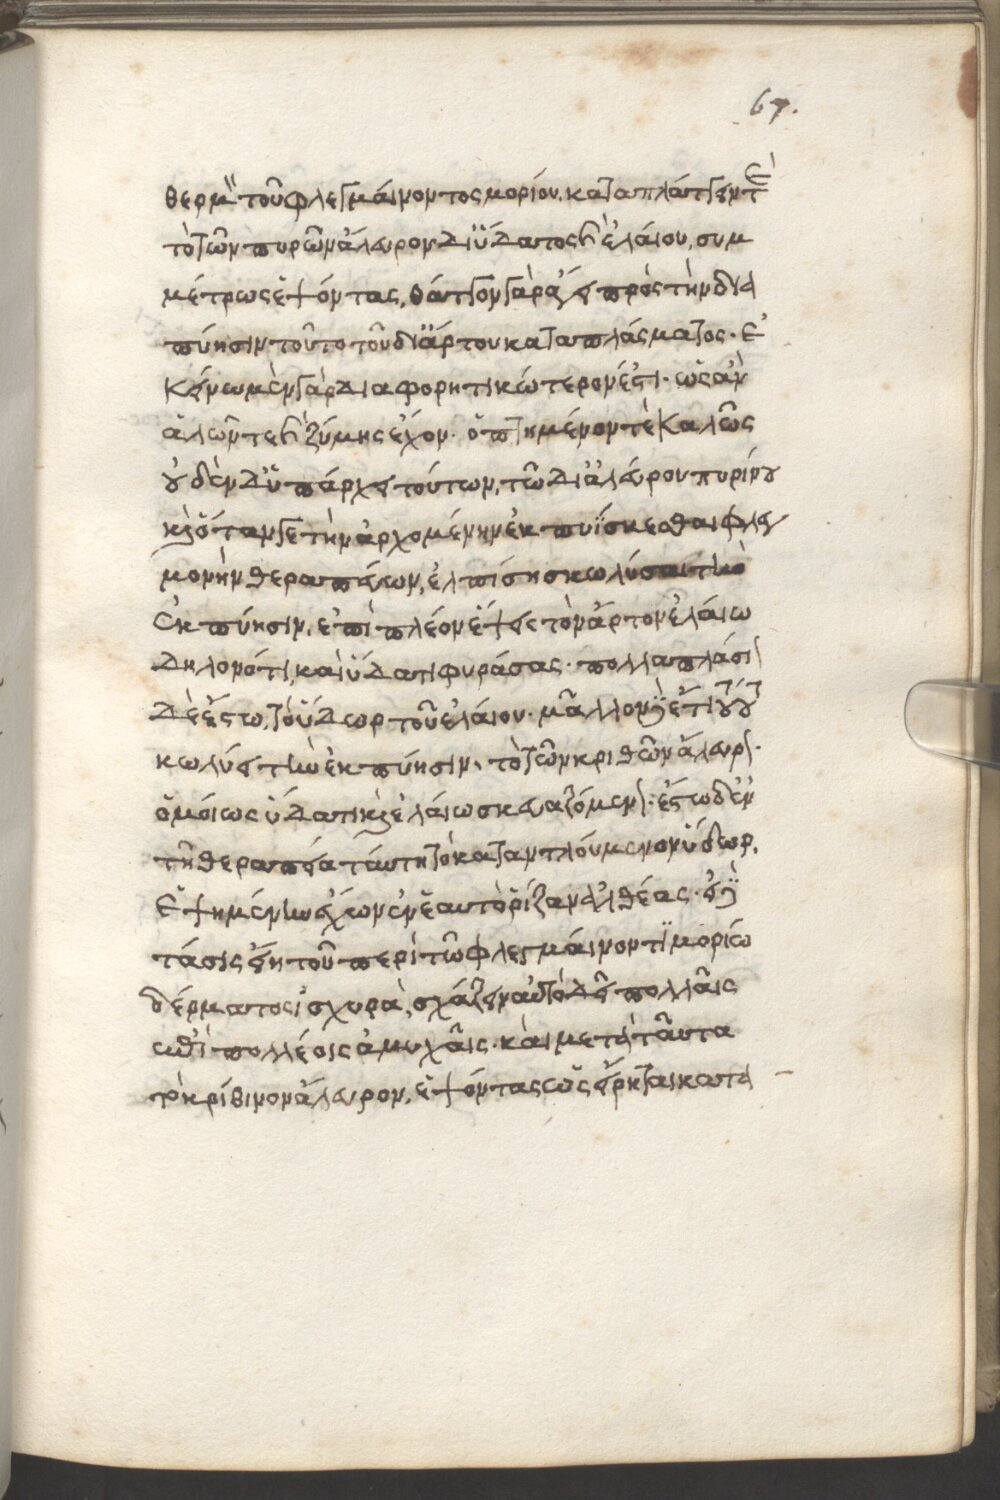 67.
θερμῶ τοῦ φλεγμαίνοντος μορίου. καταπλάττειν τε
τὸ τῶν πυρῶν ἄλευρον δι ὕδατος κ ἐλαίου, συμ
μέτρως ἕψοντας, θᾶττον γὰρ ἄγει πρὸς τὴν δια
πύησιν τοῦτο τοῦ δι ἄρτου καταπλάσματος. ἐ
κεῖνο μὲν γὰρ διαφορητικώτερον ἐστι. ὡς ἂν
ἁλῶν τε κ ζύμης ἔχον. ὀπτημένον τὲ καλῶς
οὐδὲν δ ὑπάρχει τούτων, τῶ δι ἀλεύρου πυρίνου
κ ὅταν γε τὴν ἀρχομένην ἐκπυΐσκεσθαι φλεγ
μονὴν θεραπεύων, ἐλπίσης κωλύσαι τὴν
ἐκπύησιν, ἐπὶ πλέον ἕψε τὸν ἄρτον ἐλαίω
δηλονότι, καὶ ὕδατι φυράσας. πολλαπλάσι
δὲ ἔστω, τὸ ὕδωρ τοῦ ἐλαίου. μᾶλλον δ ἔτι τούτου
κωλύει τὴν ἐκπύησιν, τὸ τῶν κριθῶν ἄλευρον.
ὁμοίως ὕδατι κ ἐλαίω σκευαζόμενον. ἔστω δ ἐν
τῆ θεραπεία ταύτη τὸ καταντλούμενον ὕδωρ,
ἑψημένην ἔχων ἐν ἑαυτῶ ῥίζαν ἀλθέας. εἰ δ
τάσις εἴη τοῦ περὶ τῶ φλεγμαίνοντι μορίω
δέρματος ἰσχυρὰ, σχάζειν αὐτὸ δεῖ πολλαῖς
ἐπιπολλέοις ἀμυχαῖς. καὶ μετὰ ταῦτα
τὸ κρίθινον ἄλευρον, ἕψοντας ὡς εἴρηται κατα